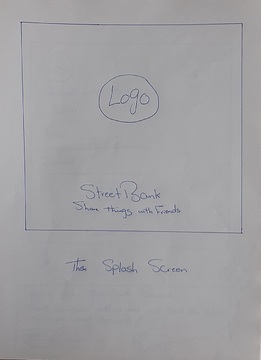 Logo
StreetBank
Share things with Friends
The Splash Screen